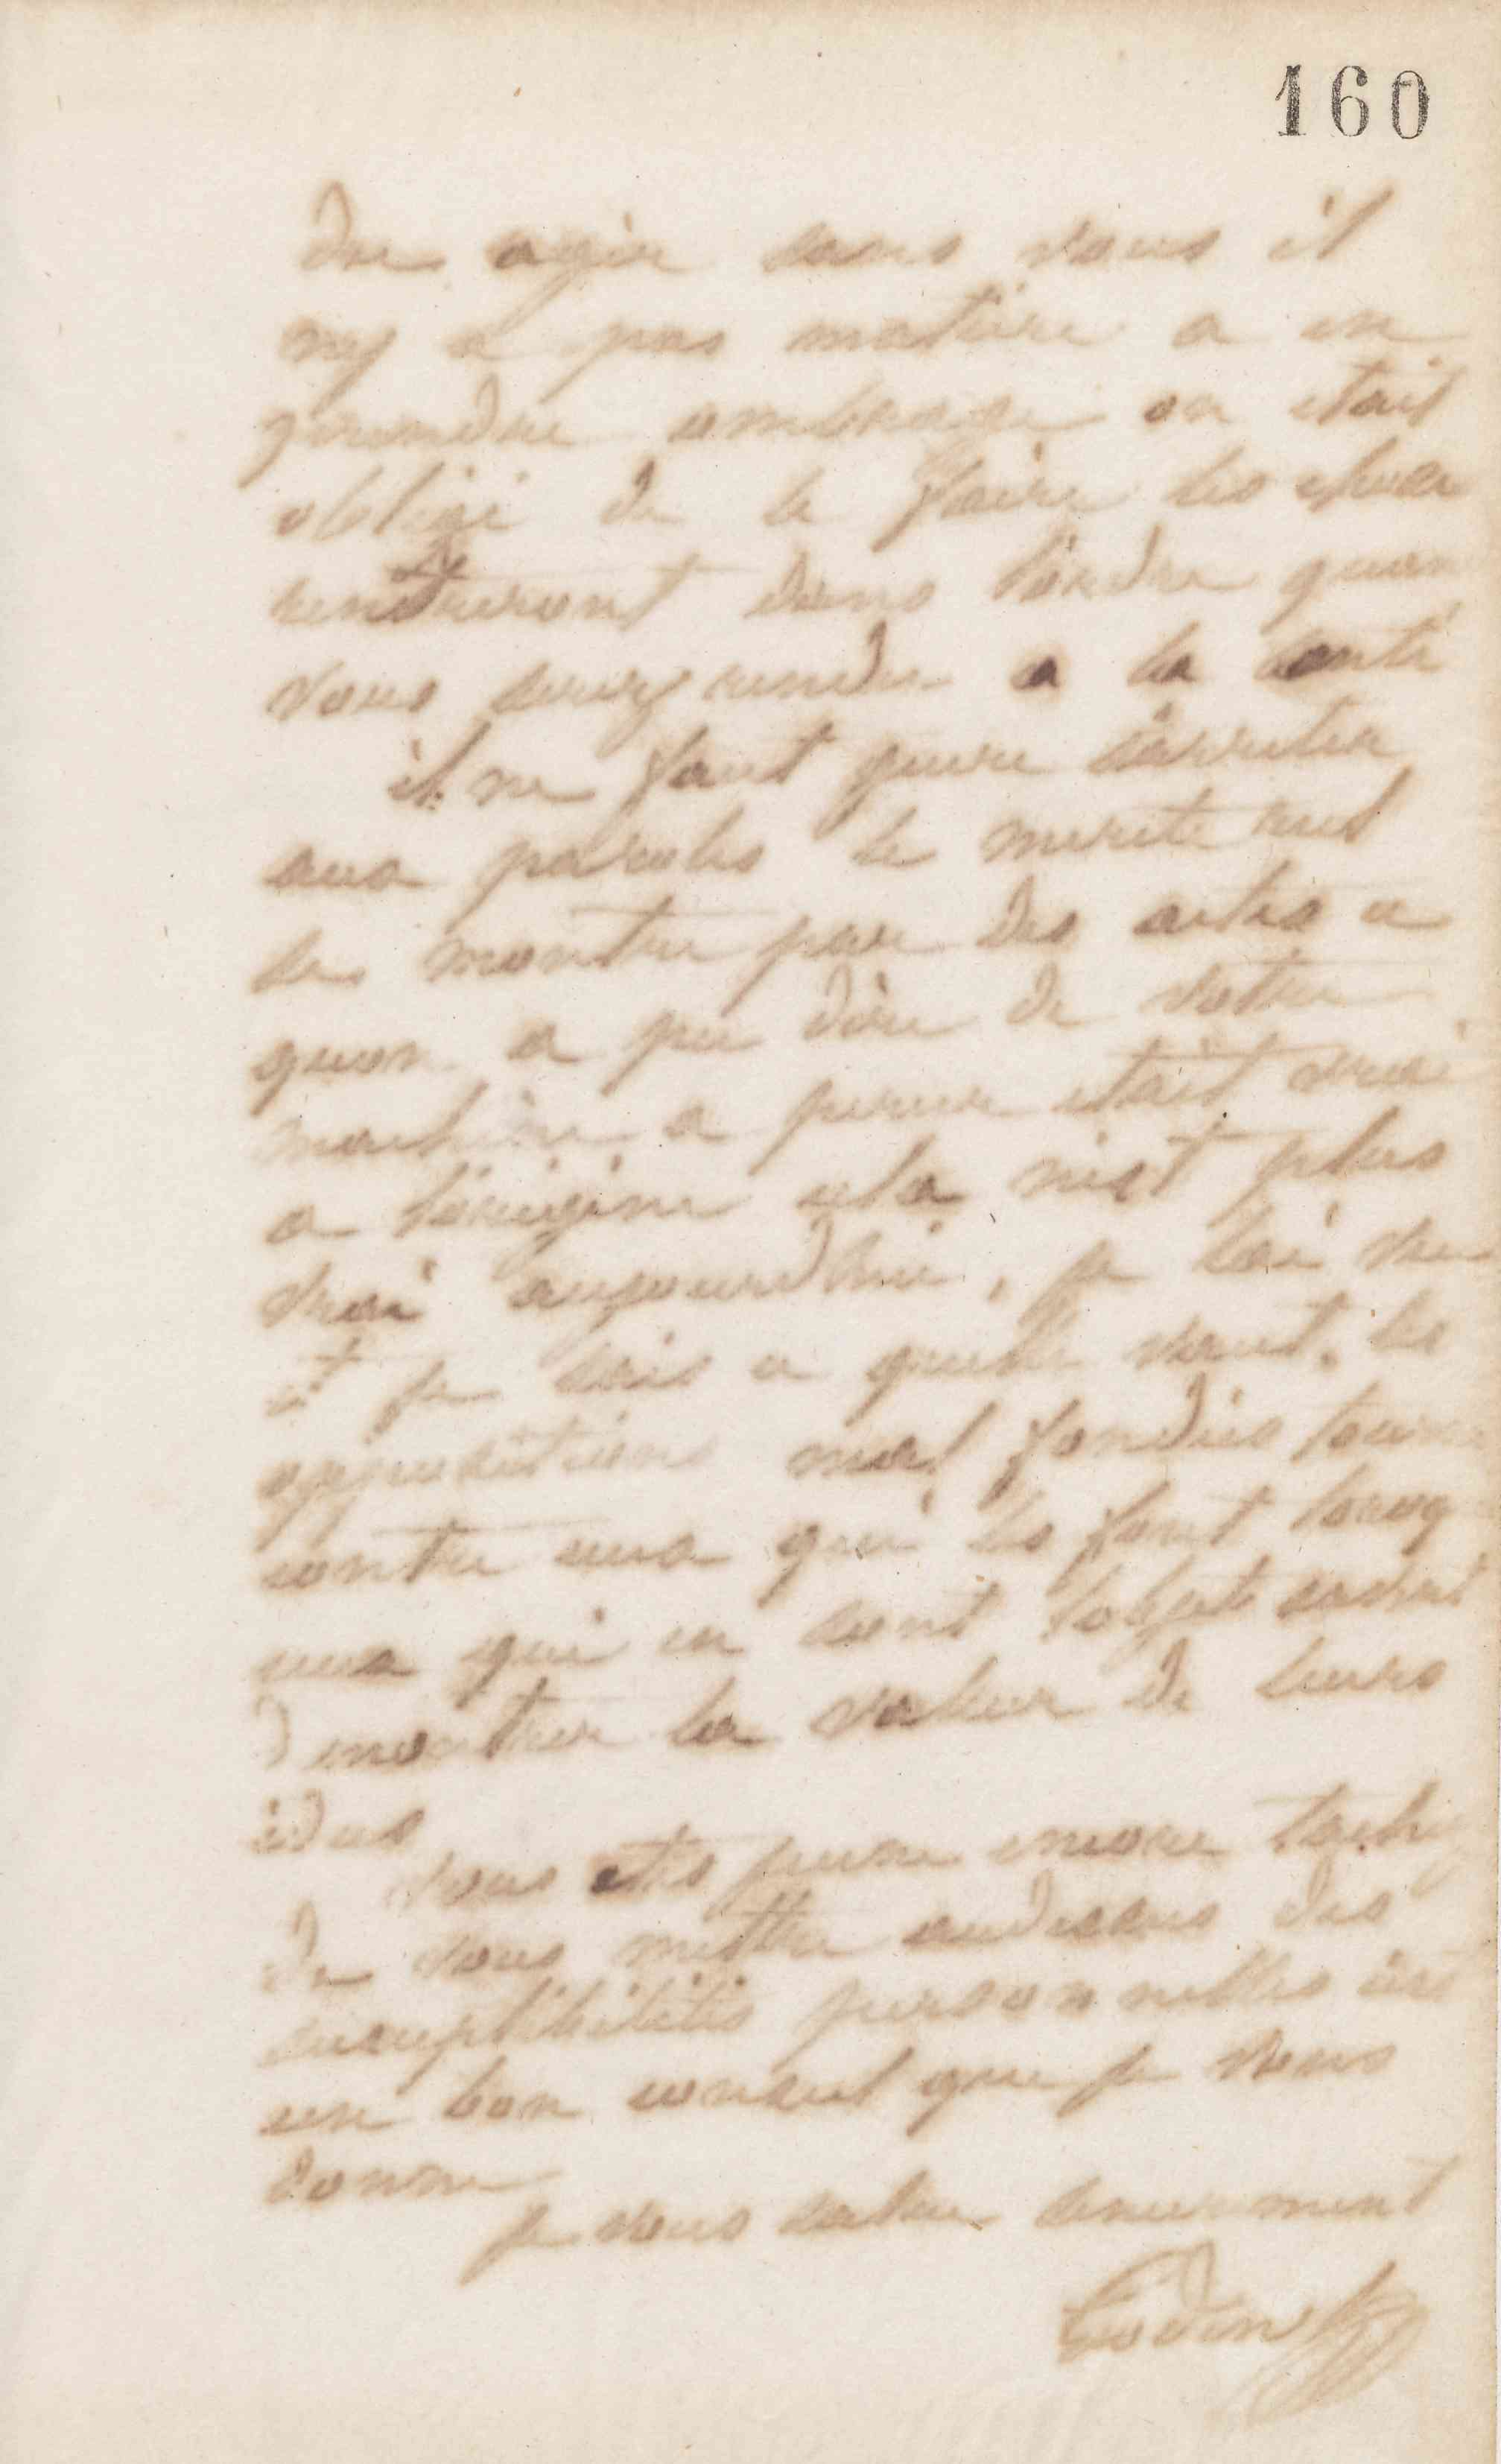 160
du agir sans vous il
ny a pas matiere a en
prendre ombrage on etait
obligé de le faire les choses
rentreront dans l'ordre quan
vous serez rendu a la santé
il ne faut guere sarreter
aux paroles le merite reel
se montre par des actes ce
quon a pu dire de votre
machine a percer etait vrai
a l'origine cela nest plus
vrai aujourdhui, je lai vu
et je sais ce quelle vaut. les
oppositions mal fondées tourn
contre ceux qui les font lorsq
ceux qui en sont lobjet savent
demontrer la valeur de leurs
idees
vous etes jeune encore tachez
de vous mettre audessus des
suceptibilités personnelles cest
un bon conseil que je vous
donne
je vous salue sincerement
Godin